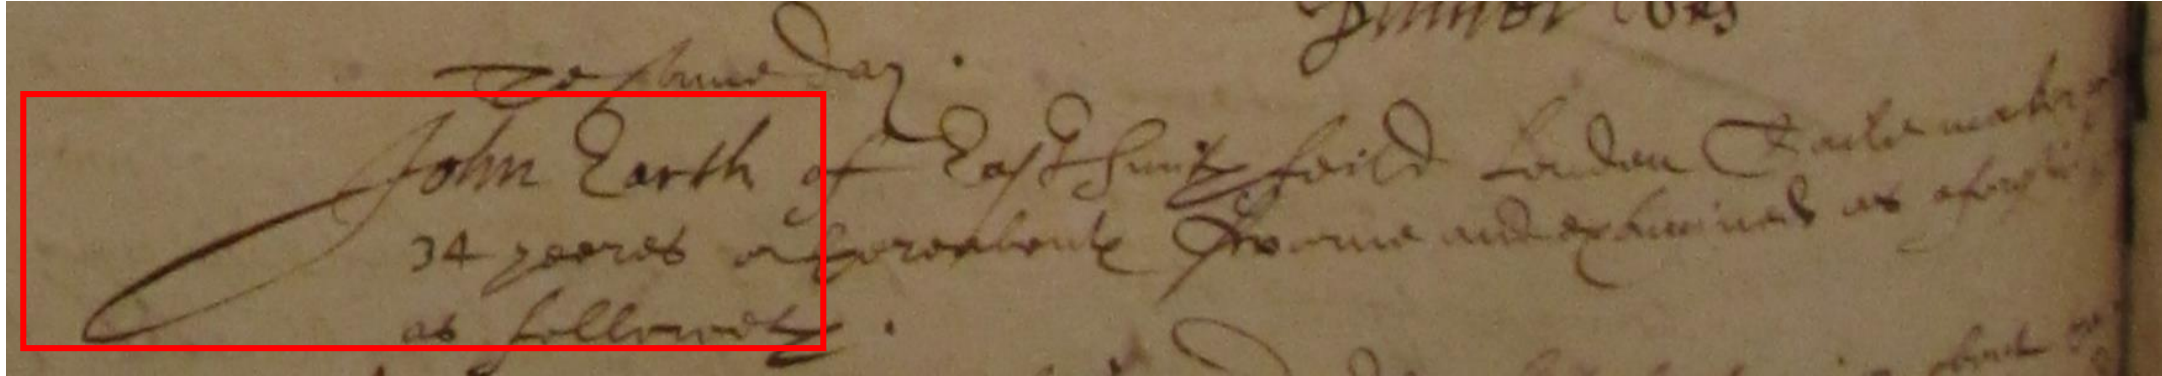 The same day.
John Earth of East Smithfeild London Sailemaker
34 yeeres or thereabouts sworne and examined as aforesaid
as followeth.